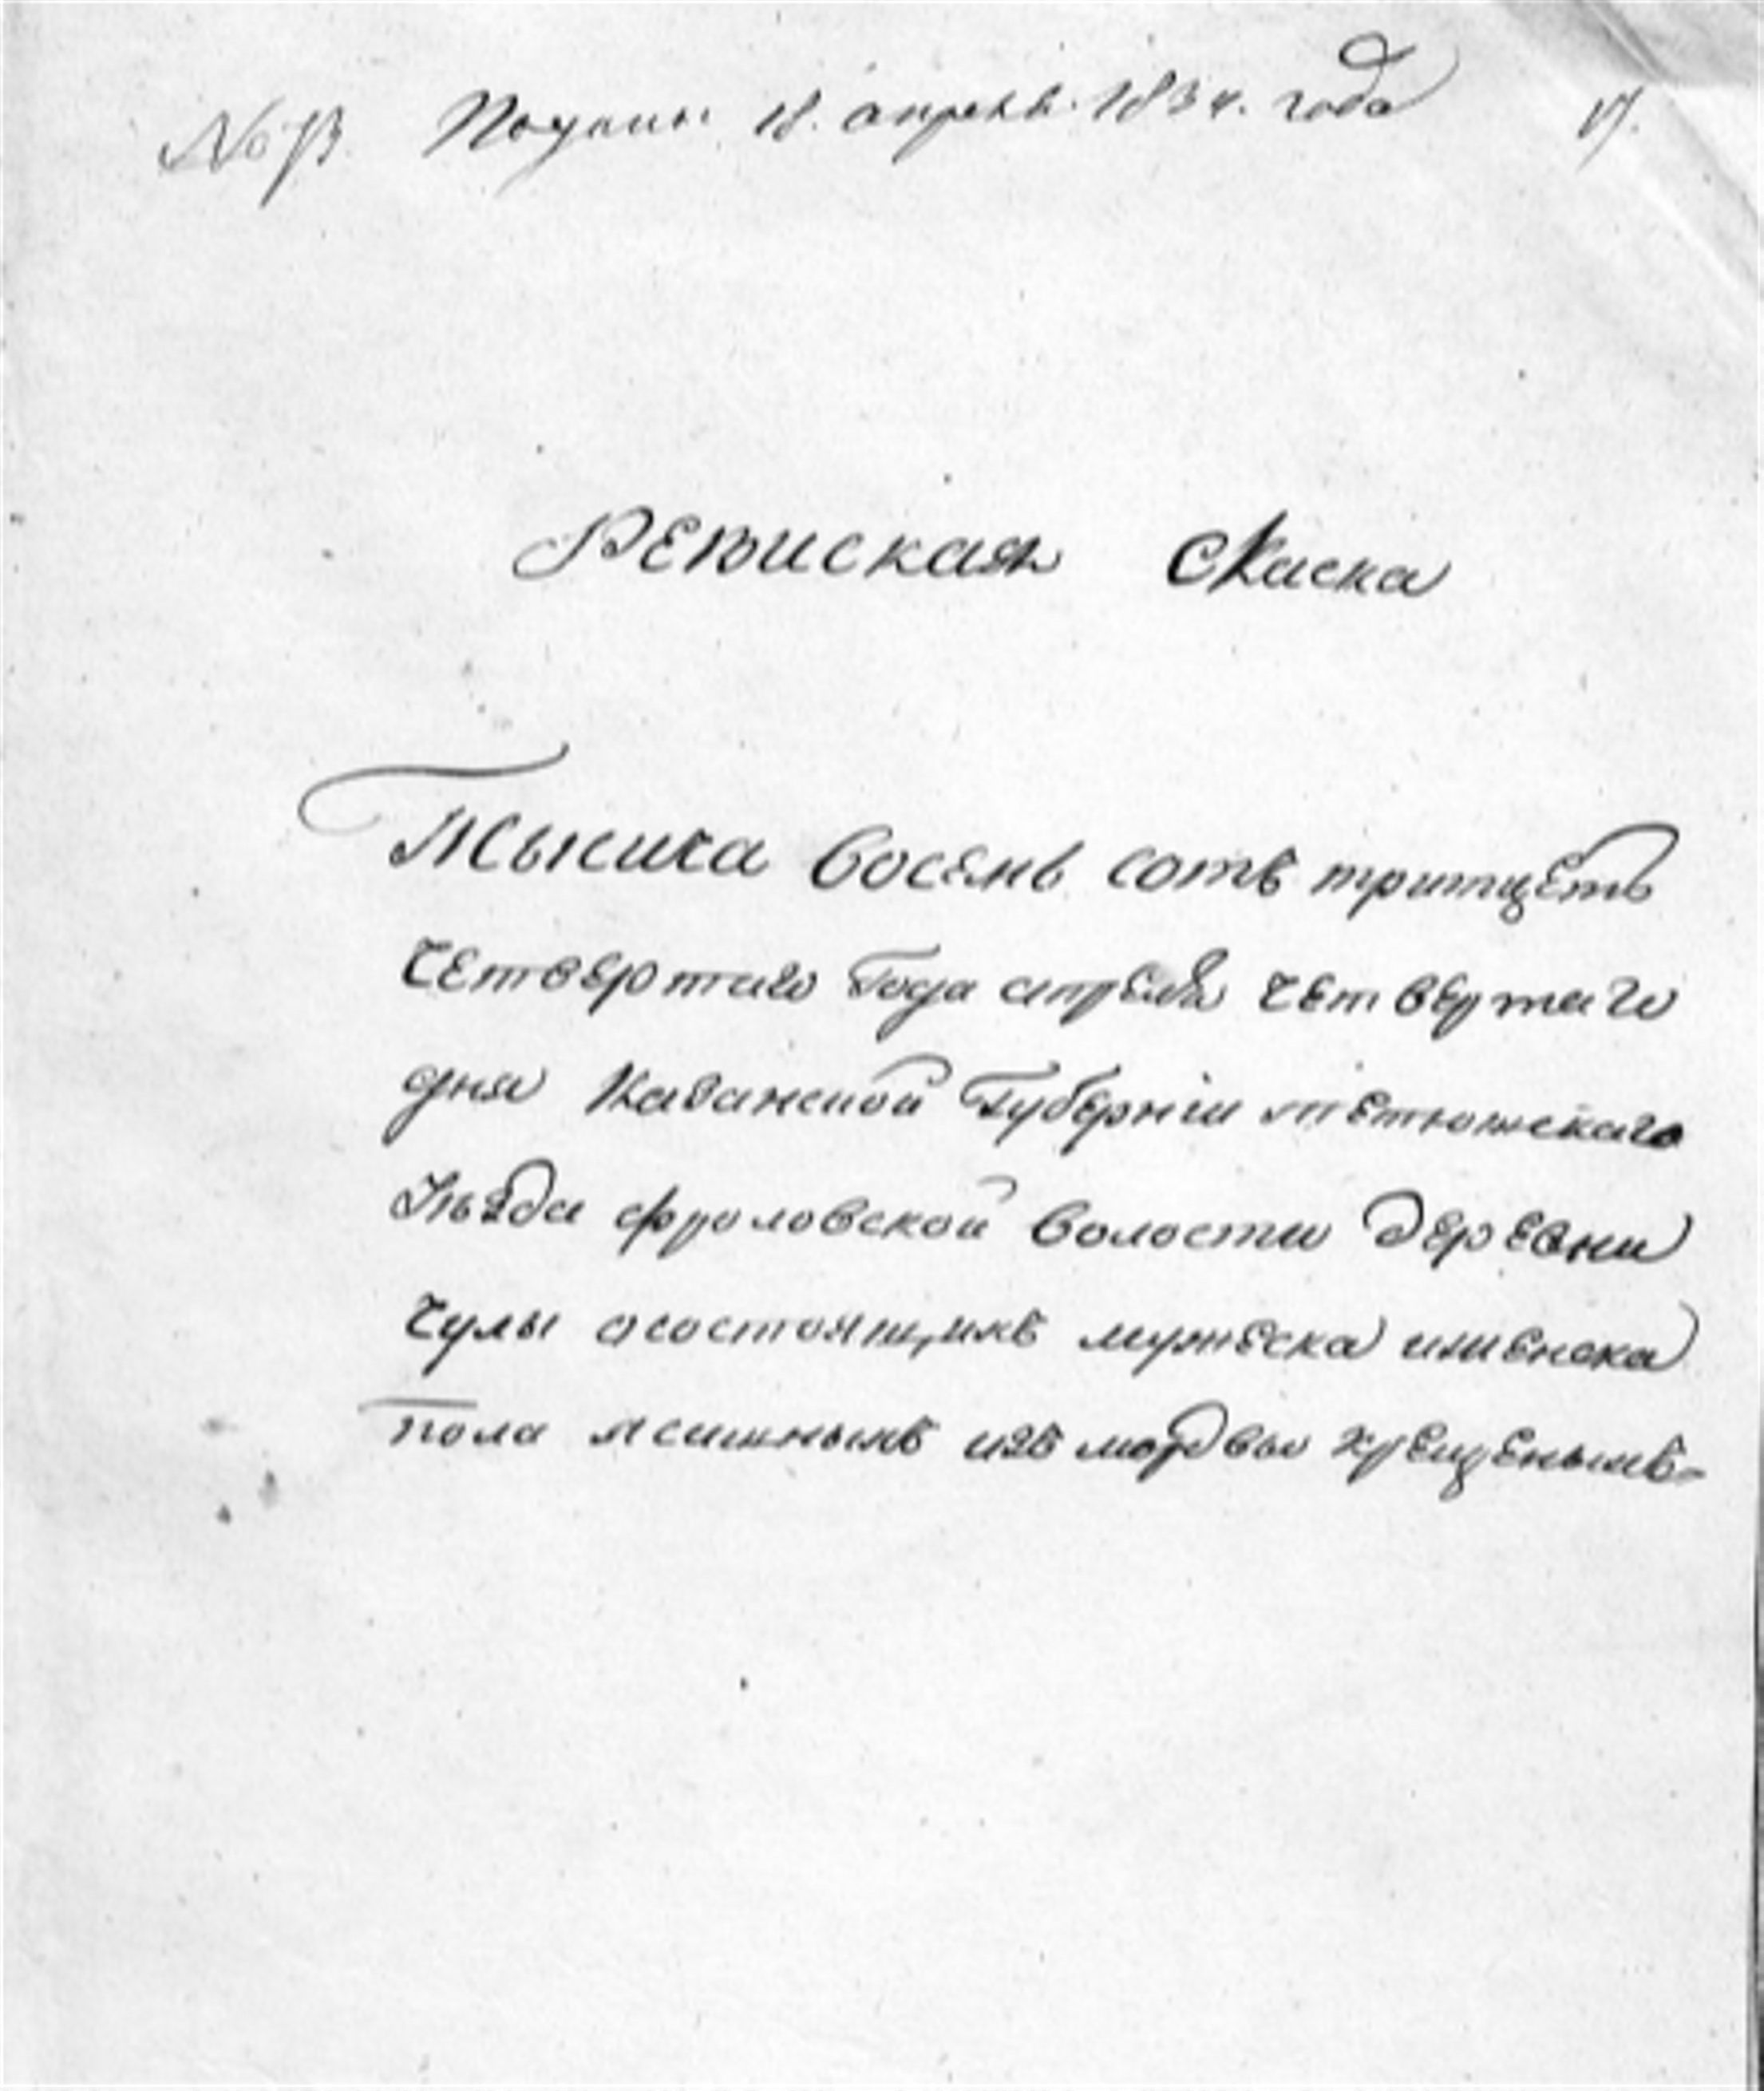 № 13. Подан 18. апреля 1834. года 17.
Ревиская скаска
Тысича восемь сотъ тритцеть
четвертаго Года апреля четвертаго
дня Казанской Губерніи тетюшскаго
Уѣзда фроловской волости деревни
чулы осостоящихъ мужеска иженска
пола ясашныхъ изъ мордвы крещеныхъ